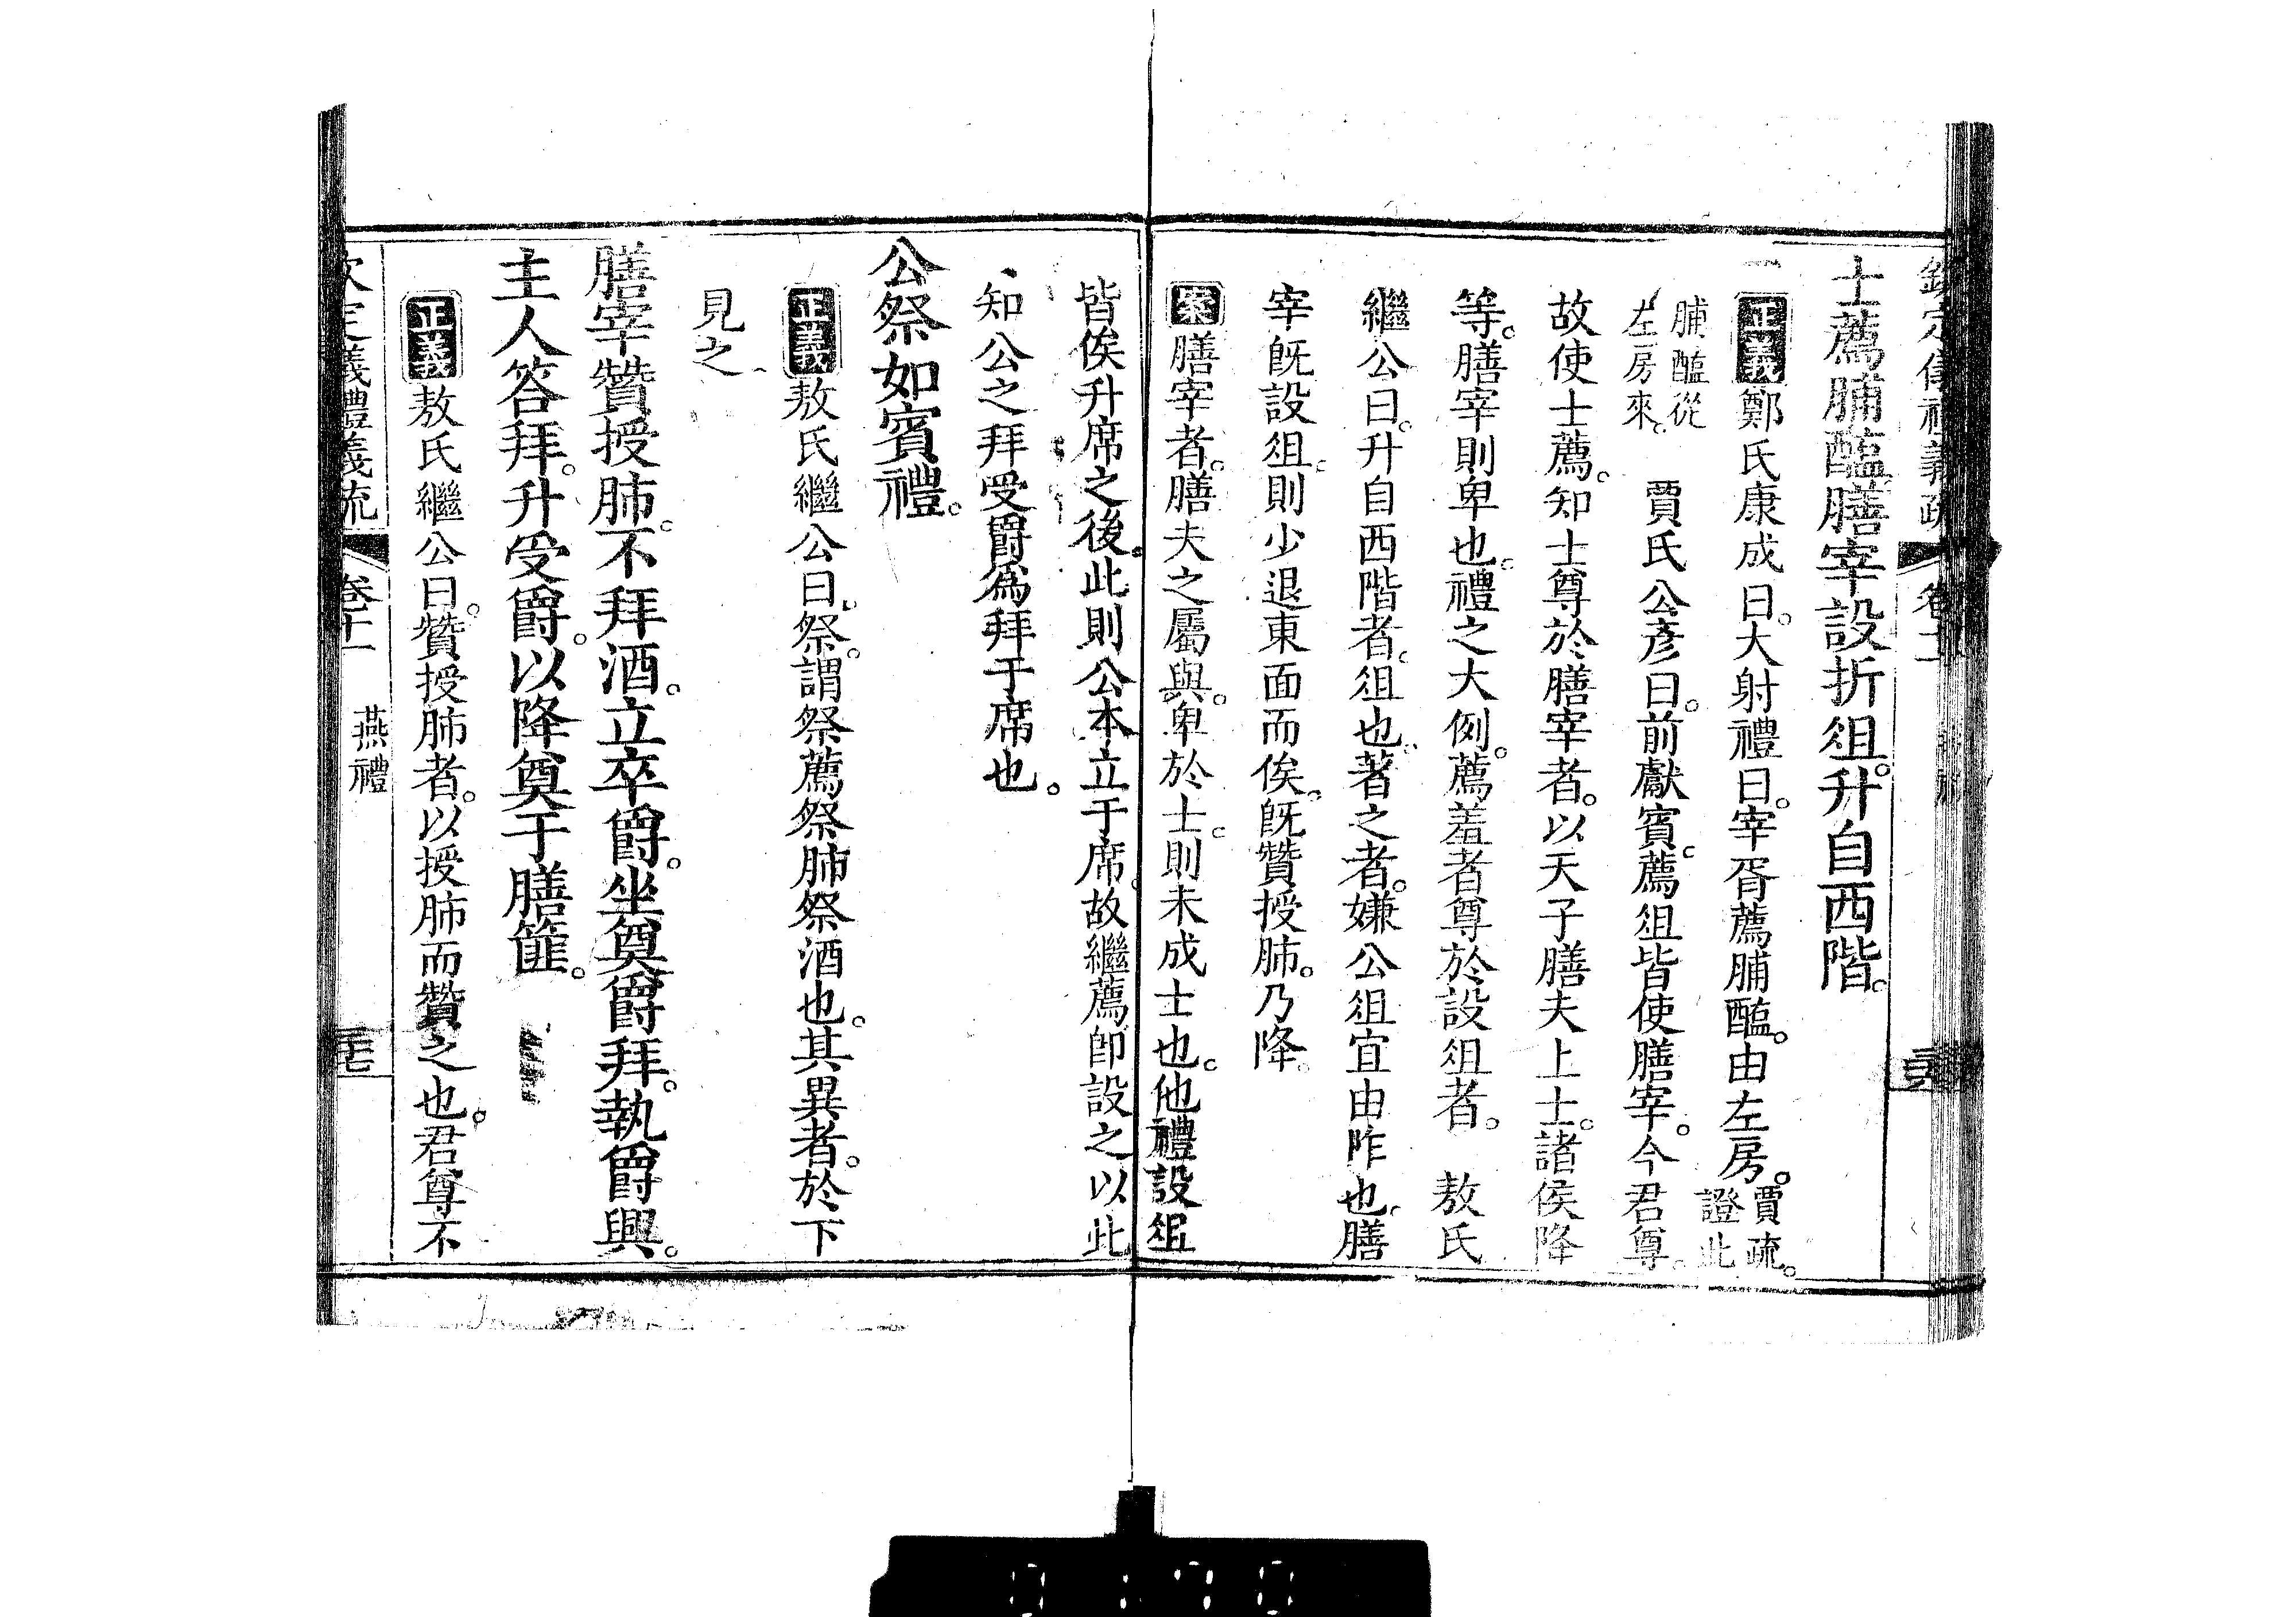 士薦脯醢膳宰設折俎。升自西階。
正義鄭氏康成曰。大射禮曰。宰胥薦脯醢。由左房。賈疏。證此
脯醢從左房來。 賈氏公彥曰。前獻賓。薦俎皆使膳宰。今君尊。
故使士薦。知士尊於膳宰者。以天子膳夫上士。諸侯降
等。膳宰則卑也。禮之大例。薦羞者尊於設俎者。 敖氏
繼公曰。升自西階者。俎也。著之者。嫌公俎宜由阼也。膳
宰旣設俎。則少退東面而俟。旣贊授肺。乃降。
案膳宰者。膳夫之屬與。卑於士。則未成士也。他禮設俎
皆俟升席之後。此則公本立于席。故繼薦卽設之以此
知公之拜受爵爲拜于席也。
公祭如賓禮。
正義敖氏繼公曰。祭。謂祭薦祭肺祭酒也。其異者。於下
見之
膳宰贊授肺。不拜酒。立卒爵。坐奠爵拜。執爵興。
主人答拜。升受爵。以降奠于膳篚。
正義敖氏繼公曰。贊授肺者。以授肺而贊之也。君尊不
義禮義疏 卷十一 燕禮 三十七